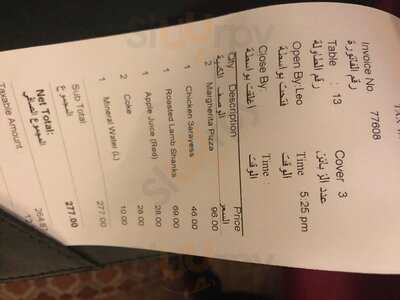 TAX IN
Invoice No. 77608
رقم الفاتورة
Table : 13 Cover 3
رقم الطاولة عدد الزبائن
Open By:Leo Time 5:25 pm
فتحت بواسطة الوقت
Close By: Time :
اغلقت بواسطة الوقت
Qty Description Price
الكمية الوصف السعر
2 Margherita Pizza 96.00
1 Chicken Sarayess 46.00
1 Roasted Lamb Shanks 69.00
1 Apple Juice (Red) 28.00
2 Coke 28.00
1 Mineral Water (L) 10.00
Sub Total 277.00
المجموع
Net Total: 277.00
المجموع الصافي
Taxable Amount 264.8